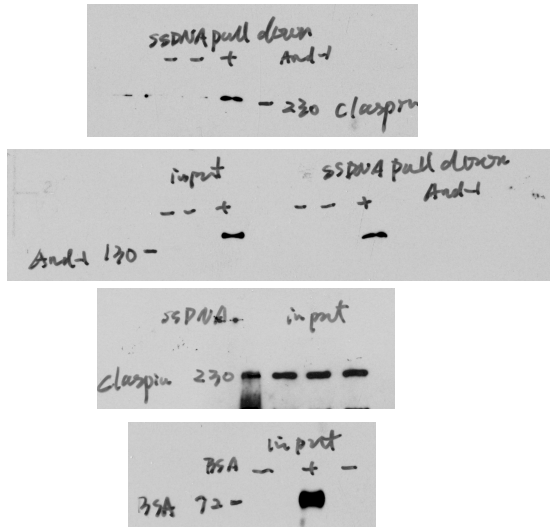 ssDNA pull down
- - + And-1
- 230 Claspin
input ssDNA pull down
And-1
- - + - - +
And-1 130 -
ssDNA input
Claspin 230
input
BSA - + -
BSA 72 -